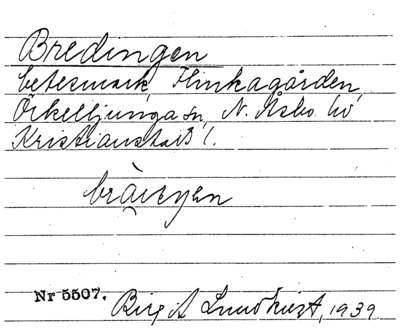 Bredingen
betesmark, Flinkagården,
Örkelljunga sn, N. Åsbo hd
Kristianstads l.
Nr 5507. Birgit Lundkvist, 1939